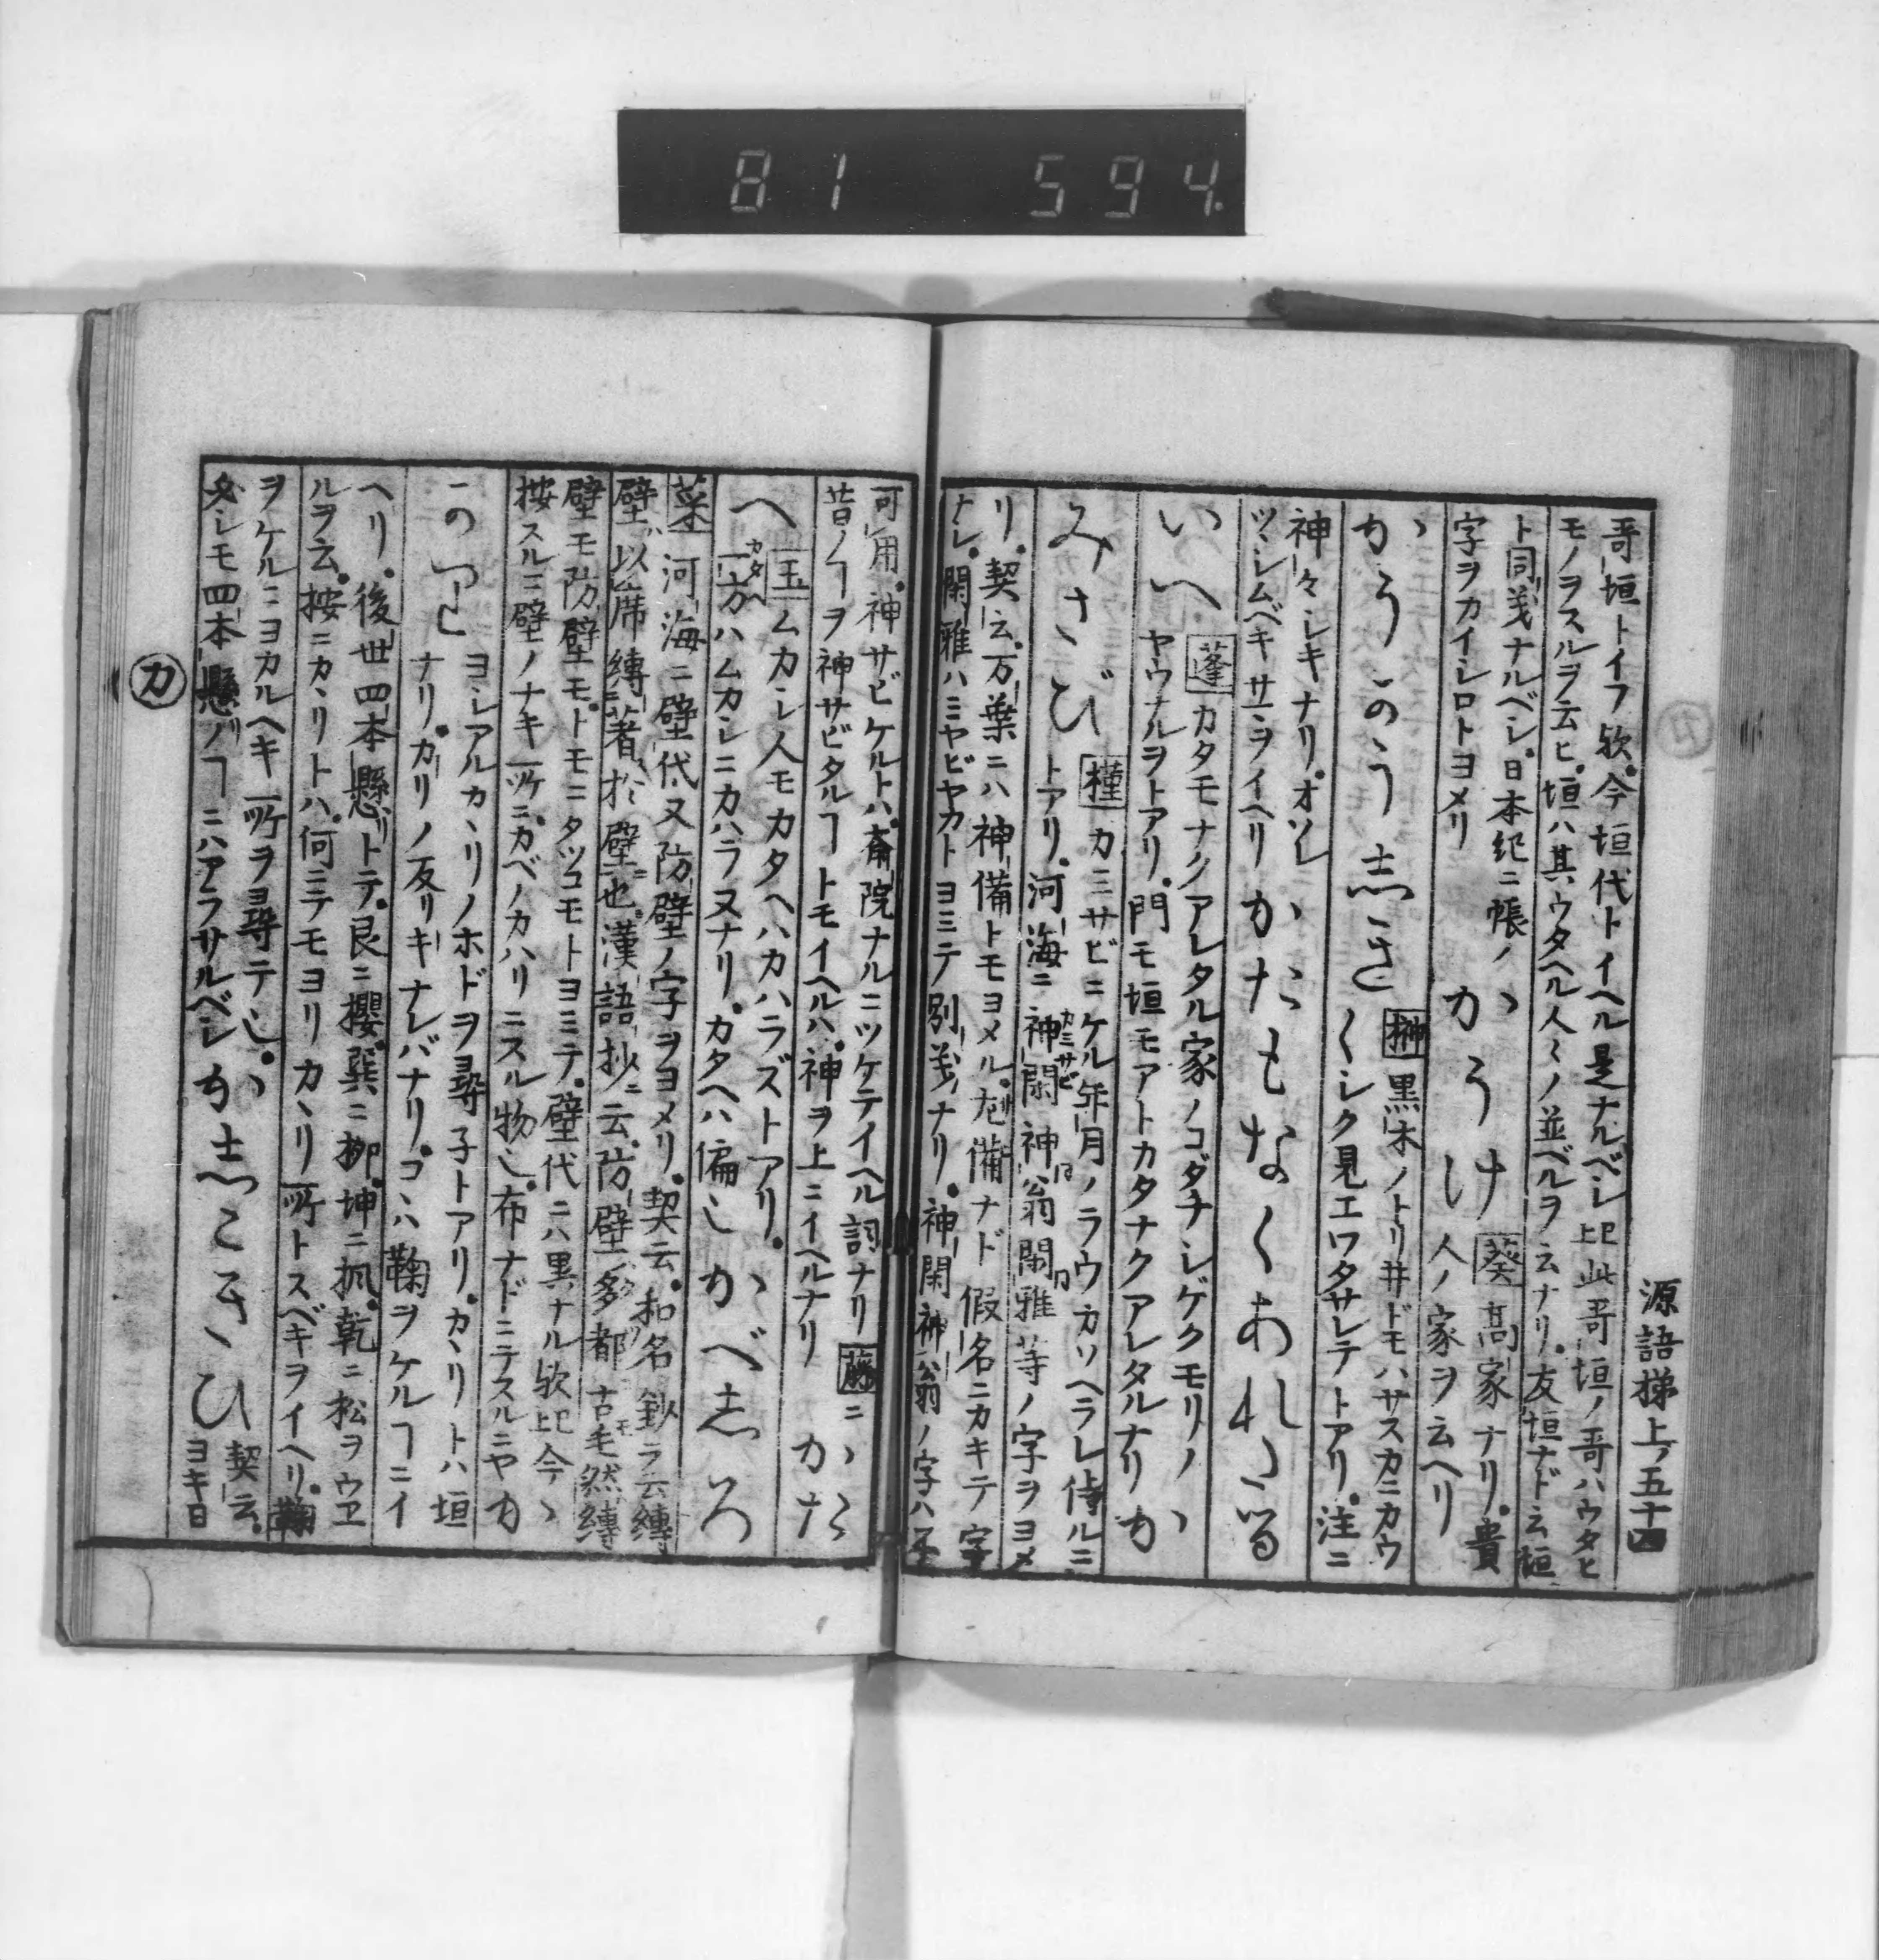 81 594.
源語梯上ノ五十四
哥垣トイフ欤今垣代トイヘル是ナルベシ比此哥垣ノ哥ハウタヒ
モノヲスルヲ云ヒ垣ハ其ウタヘル人〻ノ並ベルヲ云ナリ友垣ナド云垣
ト同義ナルベシ日本紀ニ帳ノ
字ヲカイシロトヨメリ
かうけ
葵 高家ナリ貴
人ノ家ヲ云ヘリ
かう〳〵しき
榊 黒木ノトリ井ドモハサスカニカウ
〳〵シク見エワタサレテトアリ注ニ
神々シキナリオソレ
ツヽシムベキサマヲイヘリ
かたもなくあれたる
いへ
蓬 カタモナクアレタル家ノコダチシゲクモリノ
ヤウナルヲトアリ門モ垣モアトカタナクアレタルナリ
かみさび
槿 カミサビニケル年月ノラウカソヘラレ侍ルニ
トアリ河海ニ神閑神翁閑雅等ノ字ヲヨメ
リ契云万葉ニハ神備トモヨメル左備ナド假名ニカキテ字
ナレ閑雅ハミヤビヤカトヨミテ別義ナリ神閑神翁ノ字ハ不
可用神サビケルトハ斎院ナルニツケテイヘル詞ナリ藤ニ
昔ノヿヲ神サビタルヿトモイヘルハ神ヲ上ニイヘルナリ
かたへ
玉 ムカシ人モカタヘハカハラズトアリ
一方ハムカシニカハラヌナリカタヘハ偏也
かべしろ
菜 河海ニ壁代又防壁ノ字ヲヨメリ契云和名鈔ラ云縛
壁以席縛著於壁也漢語抄ニ云防壁多都古毛然縛
壁モ防壁モトモニタツコモトヨミテ壁代ニハ異ナル欤比今〻
按スルニ壁ノナキ所ニカベノカハリニスル物也布ナドニテスルニヤ
かゝりのほど
ヨシアルカヽリノホドヲ尋子トアリカヽリトハ垣
ナリカリノ反リキナレバナリコヽハ鞠ヲケルヿニイ
ヘリ後世四本懸リトテ艮ニ櫻巽ニ柳坤ニ楓乾ニ松ヲウヱ
ルヲ云按ニカヽリトハ何ニテモヨリカヽリ所トスベキヲイヘリ鞠
ヲケルニヨカルヘキ所ヲ尋テ也
シモ四本懸ノヿニハアラサルベシ
かしこきひ
契云
ヨキ日
カ